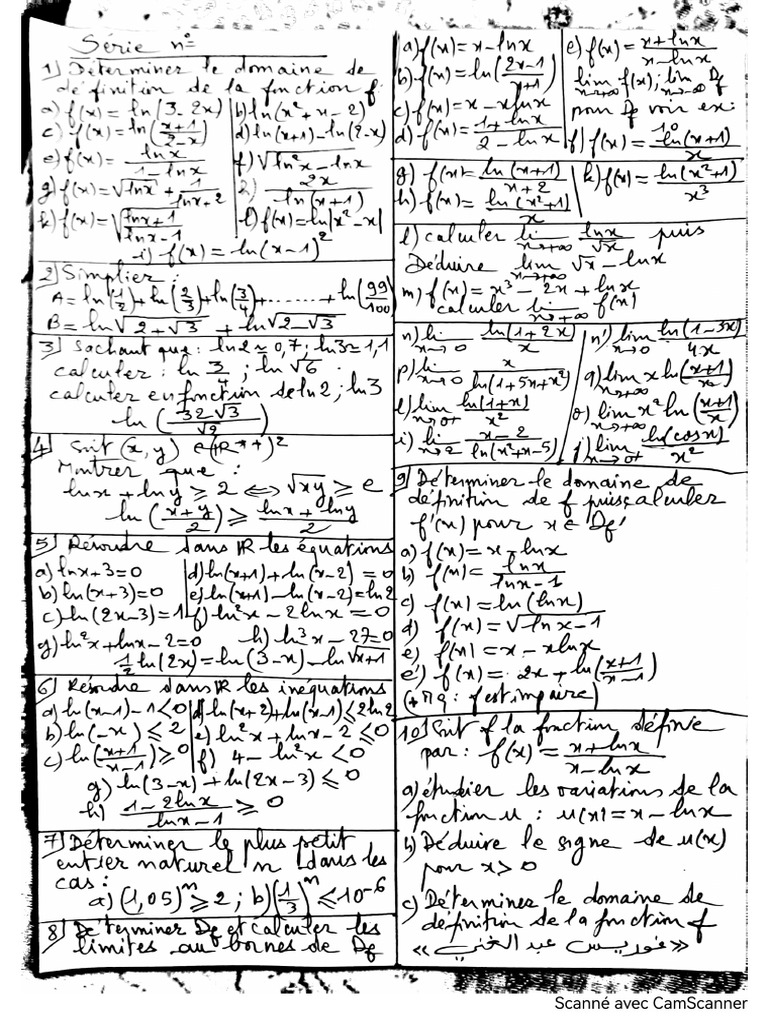 Série n°
1) Déterminer le domaine de
définition de la fonction f:
a) f(x) = ln(3-2x) | b) ln(x²+x-2)
c) f(x) = ln((x+1)/(2-x)) | d) ln(x+1) - ln(2-x)
e) f(x) = lnx/(1-lnx) | f) √(ln²x - lnx)
g) f(x) = √(lnx) + 1/(lnx+2) | 2x/ln(x+1)
k) f(x) = √((lnx+1)/(lnx-1)) | l) f(x) = ln|x²-x|
i) f(x) = ln(x-1)²
2) Simplier :
A = ln(1/2) + ln(2/3) + ln(3/4) + ........ + ln(99/100)
B = ln√(2+√3) + ln√(2-√3)
3) Sachant que : ln2 ≃ 0,7 ; ln3 ≃ 1,1
calculer : ln 3/4 ; ln√6 .
calculer en fonction de ln2 ; ln3
ln(32√3/√2)
4) Soit (x, y) ∈ (ℝ*+)²
Montrer que :
lnx + lny ≥ 2 ⟺ √xy ≥ e
ln((x+y)/2) ≥ (lnx + lny)/2
5) Résoudre dans ℝ les équations
a) lnx + 3 = 0 | d) ln(x+1) + ln(x-2) = 0
b) ln(x+3) = 0 | e) ln(x+1) - ln(x-2) = ln2
c) ln(2x-3) = 1 | f) ln²x - 2lnx = 0
g) ln²x + lnx - 2 = 0 h) ln³x - 27 = 0
1/2 ln(2x) = ln(3-x) - ln√(x+1)
6) Résoudre dans ℝ les inéquations
a) ln(x-1) - 1 < 0 | d) ln(x+2) + ln(x-1) ≤ 2ln2
b) ln(-x) ≤ 2 | e) ln²x + lnx - 2 ≤ 0
c) ln((x+1)/(x-1)) ≥ 0 | f) 4 - ln²x < 0
g) ln(3-x) + ln(2x-3) ≤ 0
h) (1-2lnx)/(lnx-1) ≥ 0
7) Déterminer le plus petit
entier naturel n dans les
cas :
a) (1,05)ⁿ ≥ 2 ; b) (1/3)ⁿ ≤ 10⁻⁶
8) Déterminer Df et calculer les
limites au bornes de Df
a) f(x) = x - lnx
b) f(x) = ln((2x-1)/(x+1))
c) f(x) = x - xlnx
d) f(x) = (1+lnx)/(2-lnx)
e) f(x) = (x+lnx)/(x-lnx)
lim x→+∞ f(x) ; lim x→-∞ Df
pour Df voir ex: 10
f) f(x) = ln(x+1)/x
g) f(x) = ln(x+1)/(x+2) | k) f(x) = ln(x²+1)/x³
h) f(x) = ln(x²+1)/x
l) calculer lim x→+∞ lnx/√x puis
Déduire lim x→+∞ √x - lnx
m) f(x) = x³ - 2x + lnx
calculer lim x→+∞ f(x)
n) lim x→0 ln(1+2x)/x | n') lim x→0 ln(1-3x)/4x
p) lim x→0 x/ln(1+5x+x²) | q) lim x→+∞ x ln((x+1)/x)
l) lim x→0+ ln(1+x)/x² | o) lim x→+∞ x² ln((x+1)/x)
i) lim x→2 (x-2)/ln(x²+x-5) | j) lim x→0+ ln(cosx)/x²
9) Déterminer le domaine de
définition de f puis calculer
f'(x) pour x ∈ Df'
a) f(x) = x - lnx
b) f(x) = lnx/(lnx-1)
c) f(x) = ln(lnx)
d) f(x) = √(lnx-1)
e) f(x) = x - xlnx
e') f(x) = 2x + ln((x+1)/(x-1))
(+Mq : f est impaire)
10) Soit f la fonction définie
par : f(x) = (x+lnx)/(x-lnx)
a) étudier les variations de la
fonction u : u(x) = x - lnx
b) Déduire le signe de u(x)
pour x > 0
c) Déterminer le domaine de
définition de la fonction f
«فوريس عبد الغني»
Scanné avec CamScanner